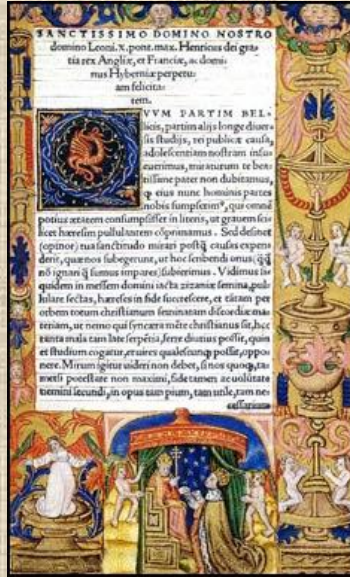 SANCTISSIMO DOMINO NOSTRO
domino Leoni.x.pont.max. Henricus dei gra-
tia rex Angliæ, et Franciæ, ac domi-
nus Hyberniæ perpetu-
am felicita-
tem.
VVM PARTIM BEL-
licis, partim alijs longe diuer-
sis studijs, rei publicæ causa,
adolescentiam nostram insu-
euerimus, miraturum te bea-
tissime pater non dubitamus,
eius nunc hominis partes
nobis sumpserim⁹, qui omnē
potius ætatem consumpsisset in literis, ut grauem sci-
licet hæresim pullulantem cōprimamus. Sed desinet
(opinor) tua sanctitudo mirari postq̄ causas expen-
derit, quæ nos subegerunt, ut hoc scribendi onus (q̄q̄
nō ignari q̄ sumus impares) subierimus. Vidimus si-
quidem in messem domini iacta zizaniæ semina, pul-
lulare sectas, hæreses in fide succrescere, et tātam per
orbem totum christianum seminatam discordiæ ma-
teriam, ut nemo qui syncæra mēte christianus sit, hæc
tanta mala tam late serpētia, ferre diutius possit, quin
et studium cogatur, et uires qualescunq; possit, oppo-
nere. Mirum igitur uideri non debet, si nos quoq;, ta-
metsi potestate non maximi, fide tamen ac uoluntate
nemini secundi, in opus tam pium, tam utile, tam ne-
cessarium